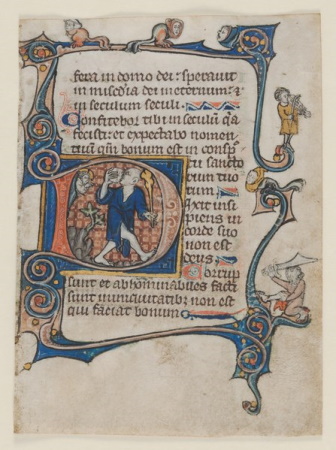 fera in domo dei: speravit
in miſcdia dei in eternum: ⁊
in seculum seculi
Confitebor tibi in seculũ qa
fecisti: et expectabo nomen
tuũ qm bonum est in cõsp
tu sancto
rum tuo
rum
Dixit insi
piens in
corde suo
non est
deus
Corrup
ti sunt et abhominabiles facti
sunt in iniquitatibꝫ non est
qui faciat bonum